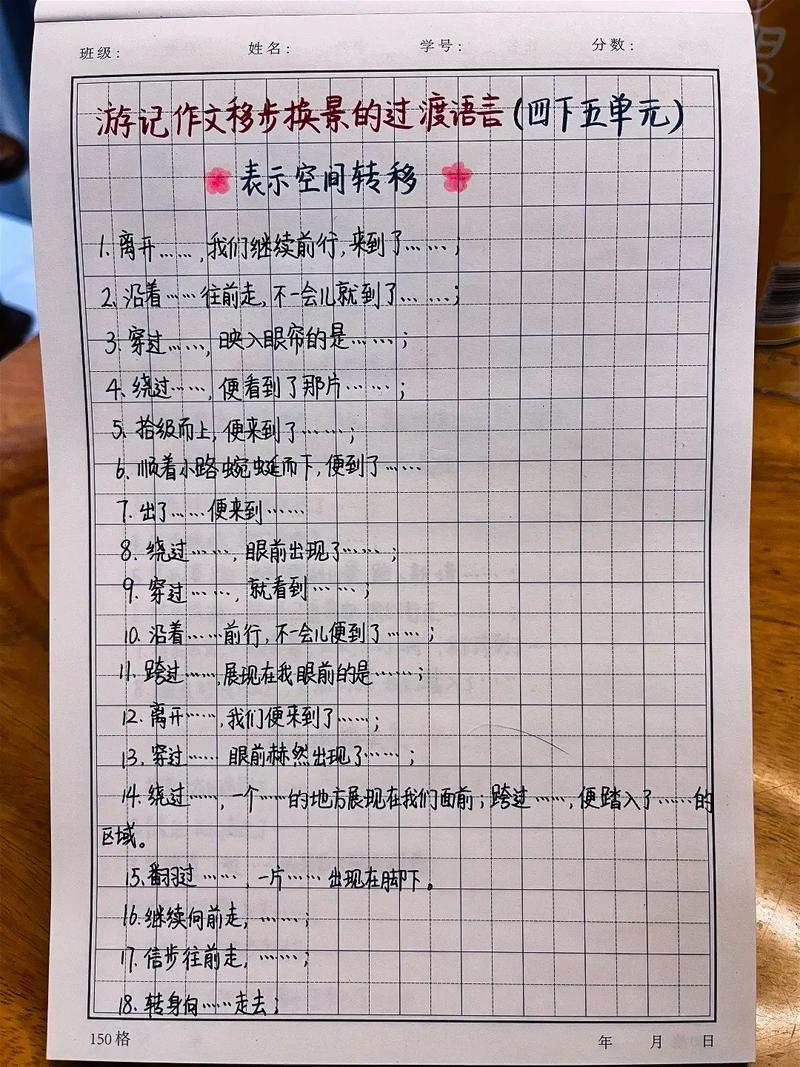 班级: 姓名: 学号: 分数:
游记作文移步换景的过渡语言(四下五单元)
表示空间转移
1.离开……,我们继续前行,来到了……;
2.沿着……往前走,不一会儿就到了……;
3.穿过……,映入眼帘的是……;
4.绕过……,便看到了那片……;
5.拾级而上,便来到了……;
6.顺着小路蜿蜒而下,便到了……
7.出了……便来到……
8.绕过……,眼前出现了……;
9.穿过……,就看到……;
10.沿着……前行,不一会儿便到了……;
11.跨过……,展现在我眼前的是……;
12.离开……,我们便来到了……;
13.穿过……眼前赫然出现了……;
14.绕过……,一个……的地方展现在我们面前;跨过……,便踏入了……的
区域。
15.翻过……,一片……出现在脚下。
16.继续向前走,……;
17.信步往前走,……;
18.转身向……走去;
150格 年 月 日